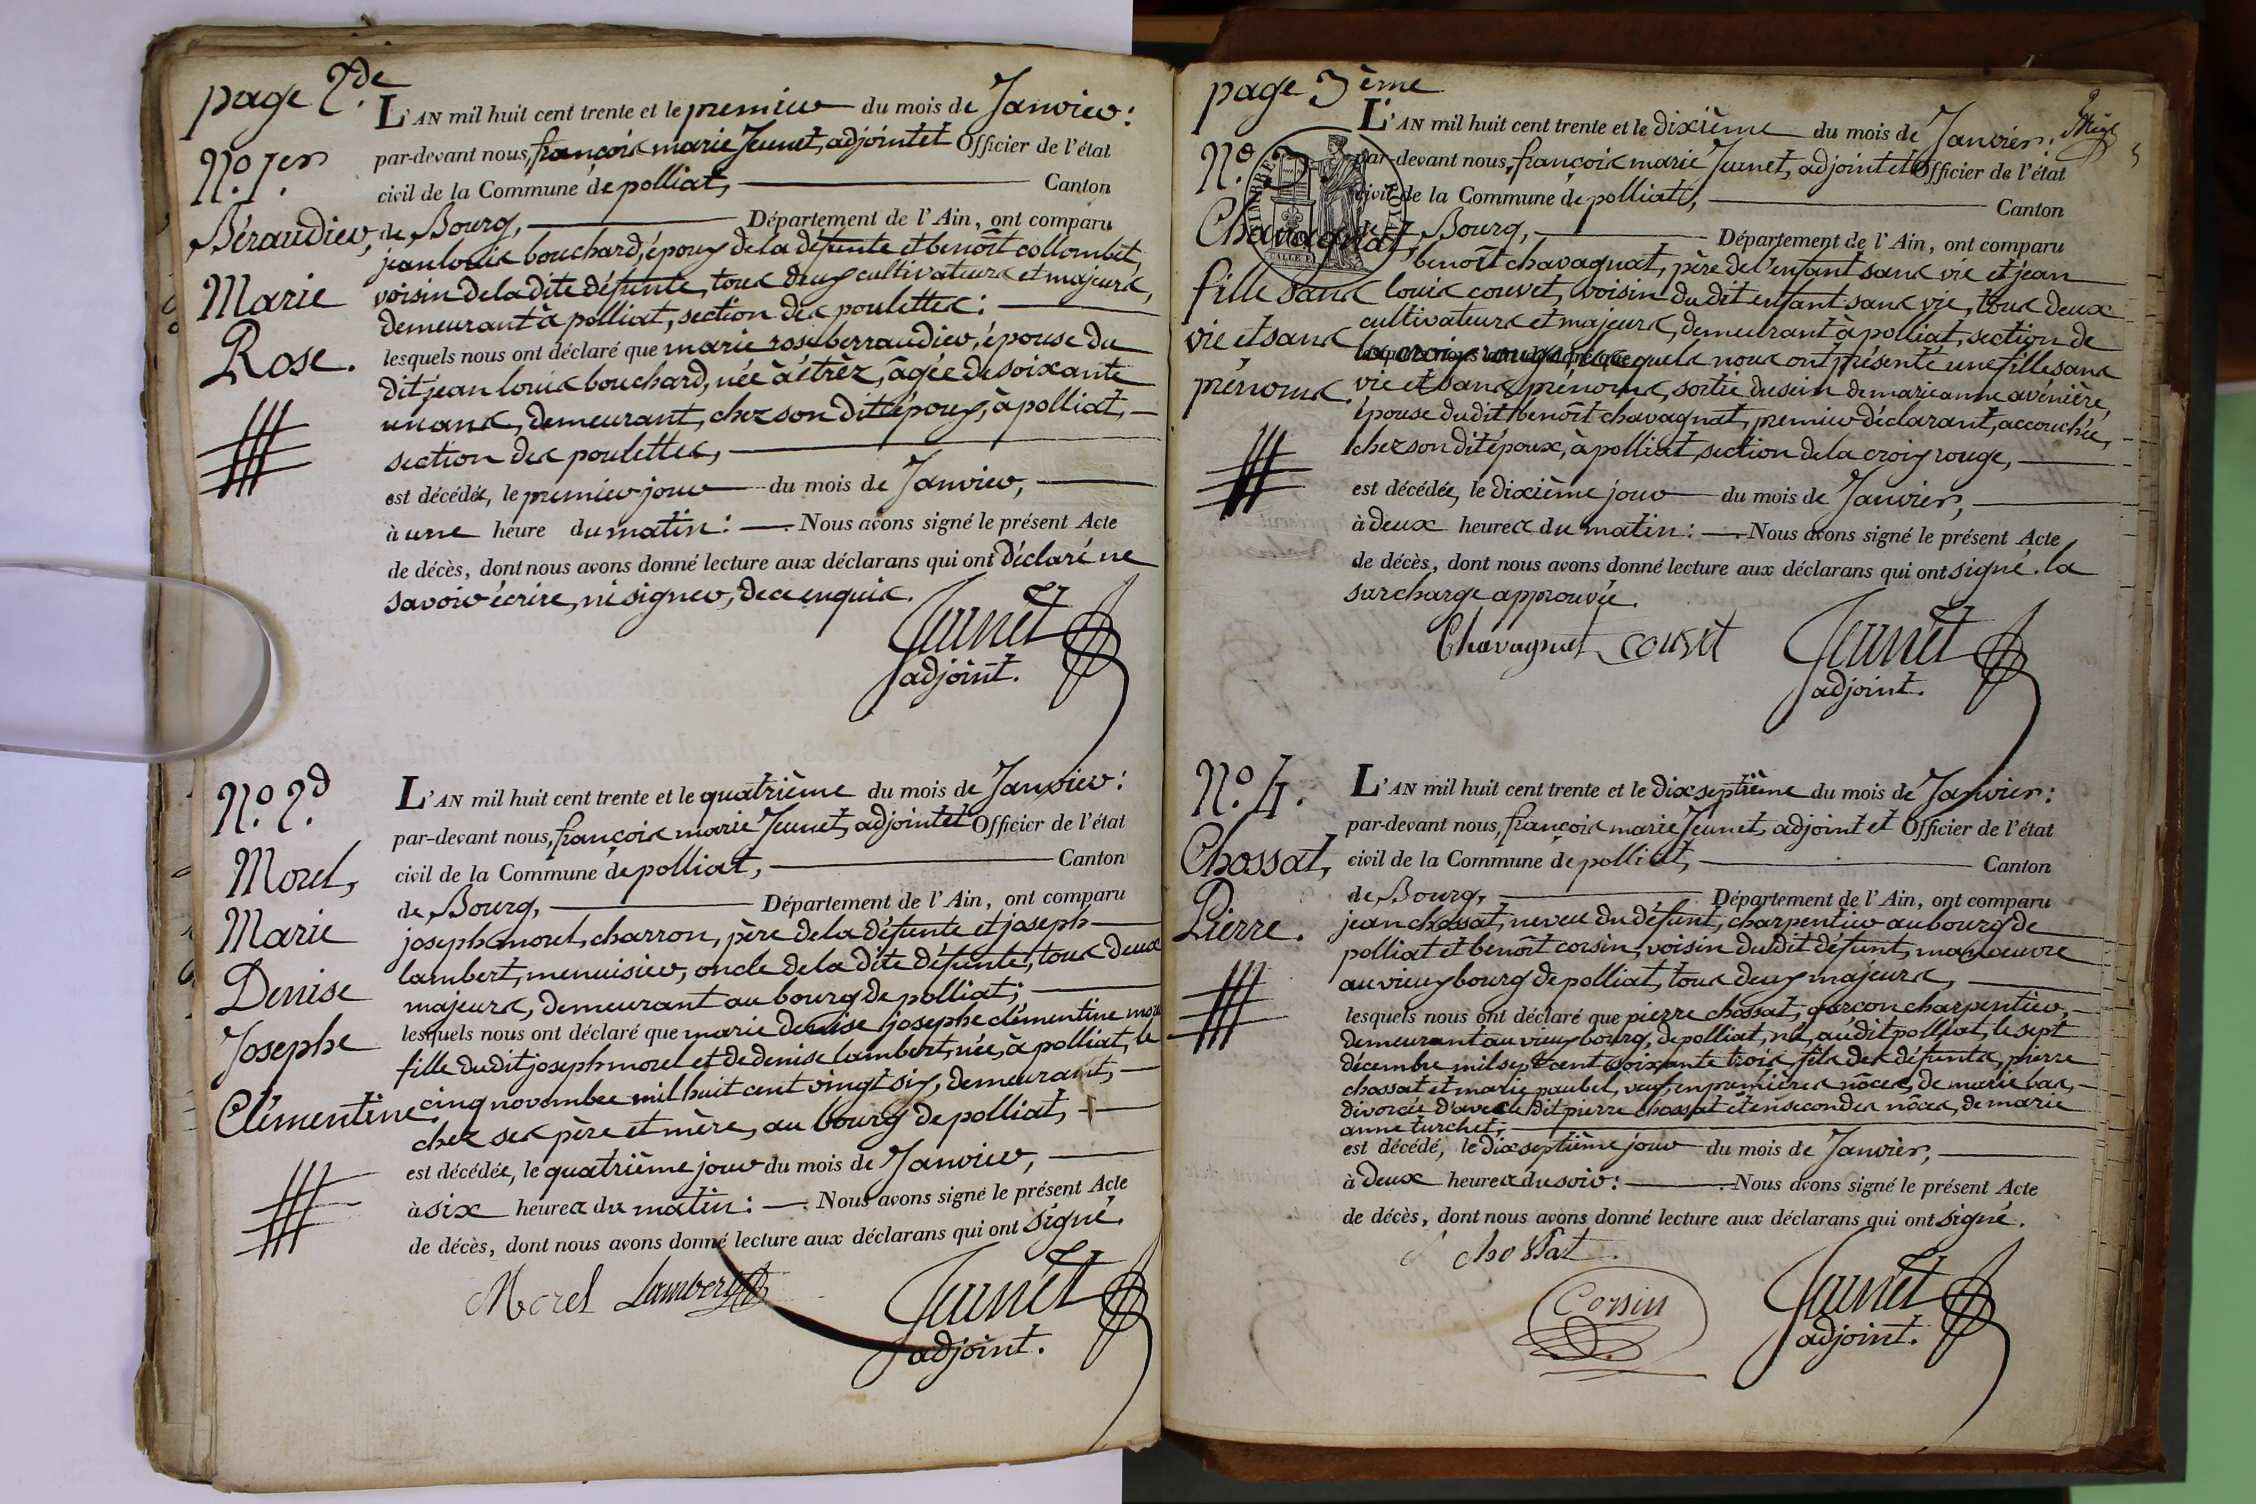 page 2de
L'AN mil huit cent trente et le premier du mois de Janvier:
No. 1er
par-devant nous, françois marie Jeunet, adjoint et Officier de l'état
civil de la Commune de polliat, Canton
Béraudier, de Bourg, Département de l'Ain, ont comparu
jean louis bouchard, époux de la défunte et benoît collombet,
Marie voisin de la dite défunte, tous deux cultivateurs et majeurs,
demeurant à polliat, section des poulettes:
Rose. lesquels nous ont déclaré que marie rose berraudier, épouse du
dit jean louis bouchard, née à étrèz, âgée de soixante
un ans, demeurant, chez son dit époux, à polliat,
section des poulettes,
est décédée, le premier jour du mois de Janvier,
à une heure du matin: Nous avons signé le présent Acte
de décès, dont nous avons donné lecture aux déclarans qui ont déclaré ne
savoir écrire, ni signer, de ce enquis.
Jeunet
adjoint.
No. 2d
L'AN mil huit cent trente et le quatrième du mois de Janvier:
par-devant nous, françois marie Jeunet, adjoint et Officier de l'état
civil de la Commune de polliat, Canton
Morel,
de Bourg, Département de l'Ain, ont comparu
Marie joseph morel, charron, père de la défunte et joseph
lambert, menuisier, oncle de la dite défunte, tous deux
Denise majeurs, demeurant au bourg de polliat;
lesquels nous ont déclaré que marie denise josephe clémentine morel
Josephe fille du dit joseph morel et de denise lambert, née, à polliat, le
Clémentine. cinq novembre mil huit cent vingt six, demeurant,
chez ses père et mère, au bourg de polliat,
est décédée, le quatrième jour du mois de Janvier,
à six heures du matin: Nous avons signé le présent Acte
de décès, dont nous avons donné lecture aux déclarans qui ont signé.
Morel Lambert Jeunet
adjoint.
page 3ème
L'AN mil huit cent trente et le dixième du mois de Janvier:
No. 3
par-devant nous, françois marie Jeunet, adjoint et Officier de l'état
civil de la Commune de polliat, Canton
TIMBRE ROYAL
Chavagnat, de Bourg, Département de l'Ain, ont comparu
benoît chavagnat, père de l'enfant sans vie et jean
fille sans louis couvet, voisin du dit enfant sans vie, tous deux
cultivateurs et majeurs, demeurant à polliat, section de
vie et sans la croix rouge, lesquels nous ont présenté une fille sans
prénoms. vie et sans prénoms, sortie du sein de marie anne avénière,
épouse du dit benoît chavagnat, premier déclarant, accouchée,
chez son dit époux, à polliat, section de la croix rouge,
est décédée, le dixième jour du mois de Janvier,
à deux heures du matin: Nous avons signé le présent Acte
de décès, dont nous avons donné lecture aux déclarans qui ont signé. la
surcharge approuvée.
Chavagnat couvet Jeunet
adjoint.
No. 4.
L'AN mil huit cent trente et le dixseptième du mois de Janvier:
par-devant nous, françois marie Jeunet, adjoint et Officier de l'état
Chossat, civil de la Commune de polliat, Canton
de Bourg, Département de l'Ain, ont comparu
Pierre. jean chossat, neveu du défunt, charpentier au bourg de
polliat et benoît corsin, voisin du dit défunt, manoeuvre
au vieux bourg de polliat, tous deux majeurs,
lesquels nous ont déclaré que pierre chossat, garçon charpentier,
demeurant au vieux bourg, de polliat, né, au dit polliat, le sept
décembre mil sept cent soixante trois, fils des défunts, pierre
chossat et marie paubel, veuf, en premières nôces, de marie bas,
divorcée d'avec le dit pierre chossat et en secondes nôces, de marie
anne turchet,
est décédé, le dixseptième jour du mois de Janvier,
à deux heures du soir: Nous avons signé le présent Acte
de décès, dont nous avons donné lecture aux déclarans qui ont signé.
chossat
Corsin Jeunet
adjoint.